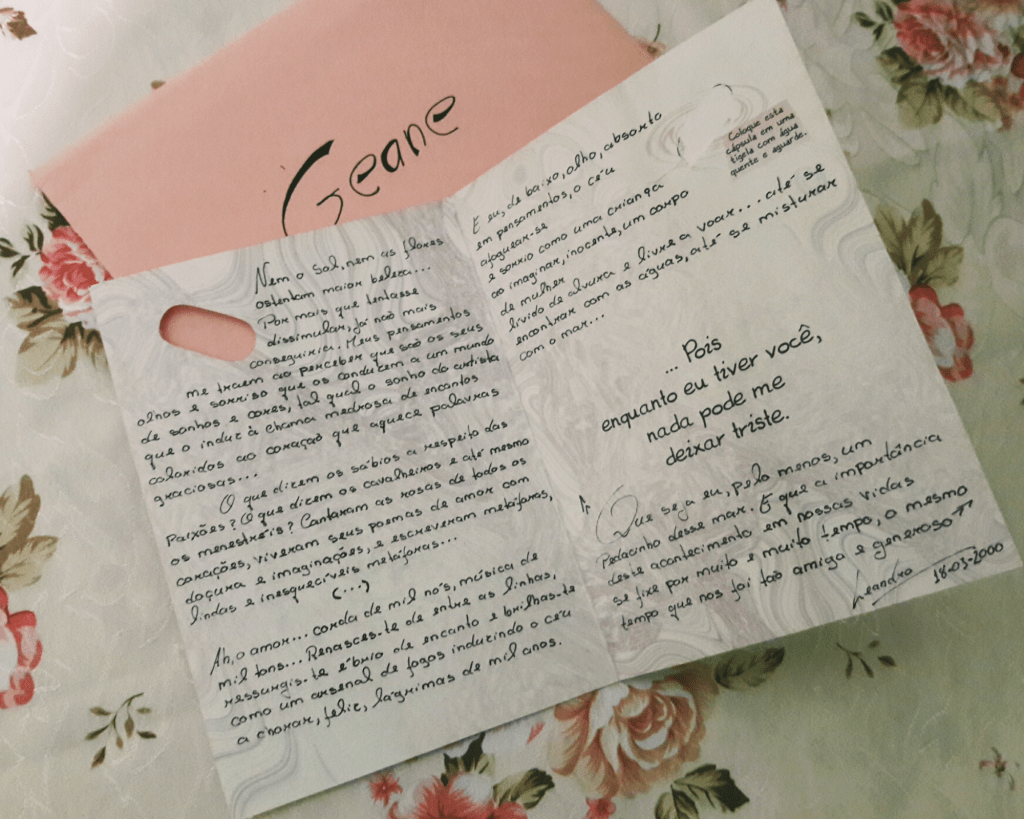 Geane
Nem o sol, nem as flores
ostentam maior beleza...
Por mais que tentasse
dissimular, já não mais
conseguiria. Meus pensamentos
me traem ao perceber que são os seus
olhos e sorriso que os conduzem a um mundo
de sonhos e cores, tal qual o sonho do artista
que o induz à chama medrosa de encantos
coloridos ao coração que aquece palavras
graciosas...
O que dizem os sábios a respeito das
Paixões? O que dizem os cavalheiros e até mesmo
os menestréis? Cantaram as rosas de todos os
corações, viveram seus poemas de amor com
doçura e imaginações, e escreveram metáforas,
lindas e inesquecíveis metáforas...
(...)
Ah, o amor... corda de mil nós, música de
mil tons... Renasces-te de entre as linhas,
ressurgis-te ébrio de encanto e brilhas-te
como um arsenal de fogos induzindo o céu
a chorar, feliz, lágrimas de mil anos.
E eu, de baixo, olho, absorto
em pensamentos, o céu
afoguear-se
e sorrio como uma criança
ao imaginar, inocente, um corpo
de mulher
lívido de alvura e livre a voar... até se
encontrar com as águas, até se misturar
com o mar...
Coloque esta
cápsula em uma
tigela com água
quente e aguarde.
... Pois
enquanto eu tiver você,
nada pode me
deixar triste.
Que seja eu, pelo menos, um
Pedacinho desse mar. E que a importância
deste acontecimento em nossas vidas
se fixe por muito e muito tempo, o mesmo
tempo que nos foi tão amigo e generoso
Leandro 18-03-2000